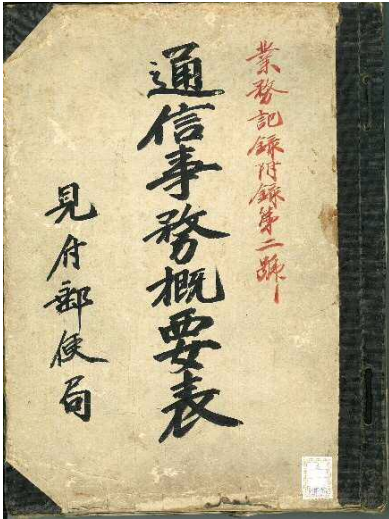 業務記録附録第二號
通信事務概要表
見付郵便局